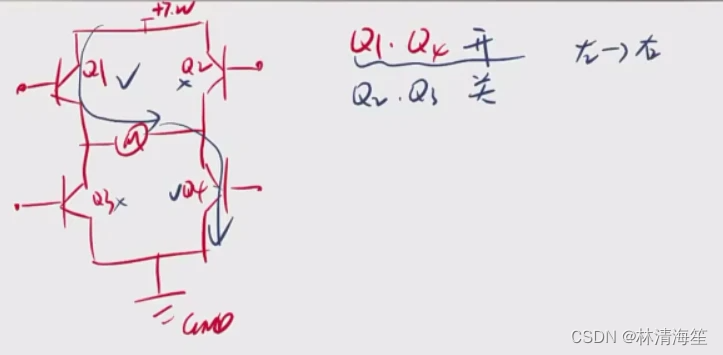 +7.4V
Q1 ✓
Q2
×
Q1. Q4 开
左→右
Q2. Q3 关
M
Q3×
✓Q4
GND
CSDN @林清海笙